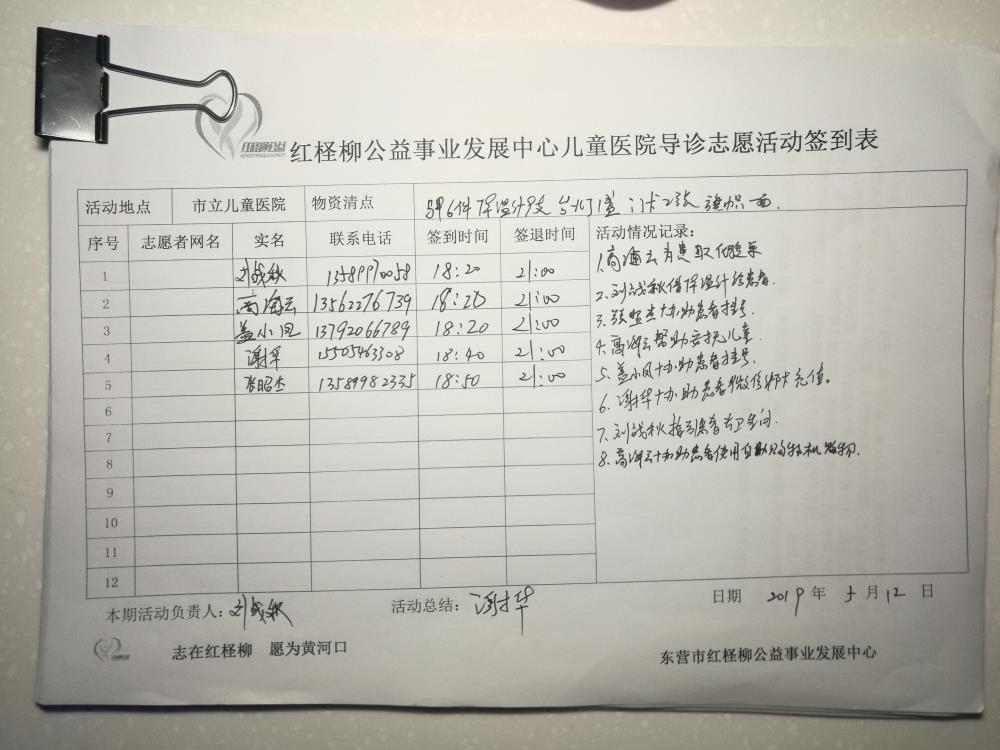 红柽柳公益
红柽柳公益事业发展中心儿童医院导诊志愿活动签到表
活动地点 市立儿童医院 物资清点 马甲6件 体温计9支 台灯1盏 门卡2张 旗帜一面.
序号 志愿者网名 实名 联系电话 签到时间 签退时间 活动情况记录:
1 刘战秋 13589970058 18:20 21:00
2 高海云 13562276739 18:20 21:00
3 盖小凤 13792066789 18:20 21:00
4 谢华 15505463308 18:40 21:00
5 张昭杰 13589982335 18:50 21:00
6
7
8
9
10
11
12
1.高海云为患取化验单
2.刘战秋借体温计给患者.
3.张照杰协助患者挂号.
4.高海云帮助安抚儿童.
5.盖小凤协助患者挂号.
6.谢华协助患者微信绑卡充值。
7.刘战秋指引患者去卫生间.
8.高海云协助患者使用自助购物机购物.
本期活动负责人:刘战秋 活动总结:谢华 日期 2019年5月12日
志在红柽柳 愿为黄河口 东营市红柽柳公益事业发展中心